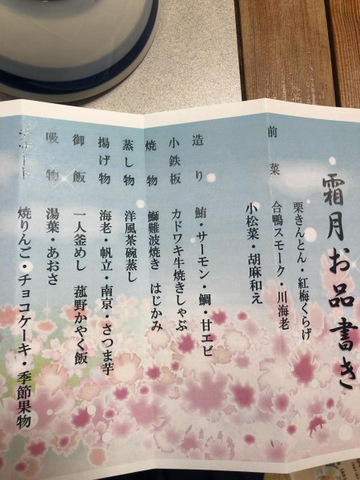 霜月お品書き
前菜 栗きんとん・紅梅くらげ
合鴨スモーク・川海老
小松菜・胡麻和え
造り 鮪・サーモン・鯛・甘エビ
小鉄板 カドワキ牛焼きしゃぶ
焼物 鰤難波焼き はじかみ
蒸し物 洋風茶碗蒸し
揚げ物 海老・帆立・南京・さつま芋
御飯 一人釜めし 菰野かやく飯
吸物 湯葉・あおさ
デザート 焼りんご・チョコケーキ・季節果物